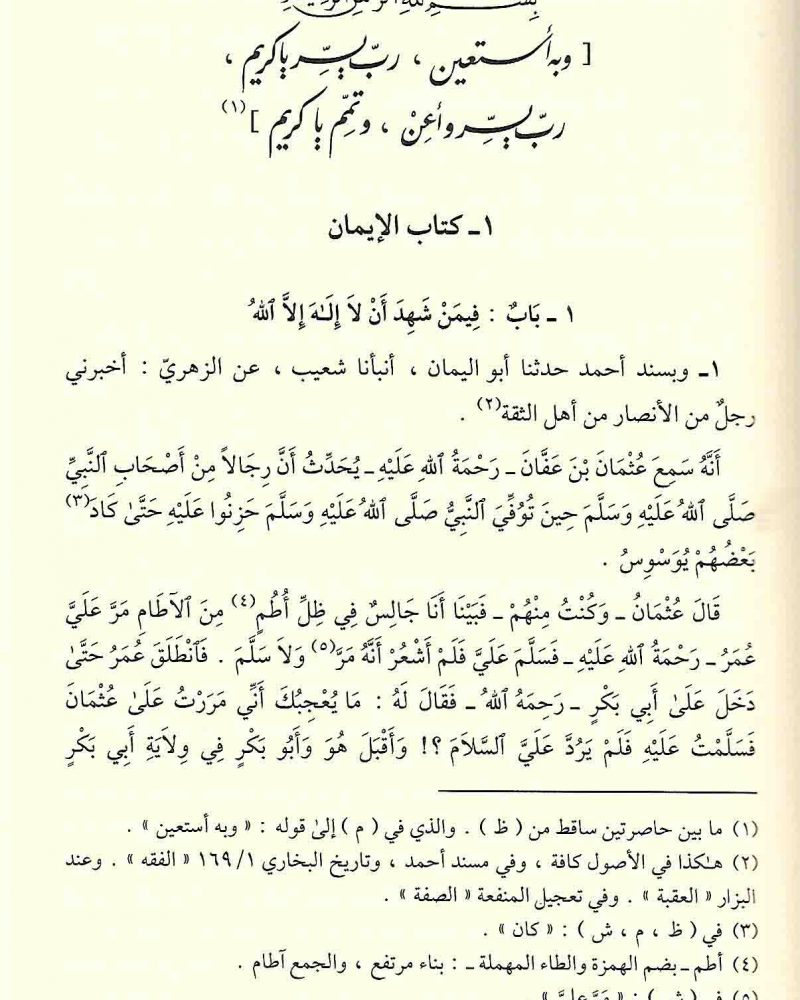 بسم الله الرحمن الرحيم
[ وبه أستعين ، ربّ يسّر يا كريم ،
ربّ يسّر وأعِنْ ، وتمّم يا كريم ](١)
١ـ كتاب الإيمان
١ ـ بَابٌ : فِيمَنْ شَهِدَ أَنْ لاَ إِلَـٰهَ إِلاَّ ٱللهُ
١ـ وبسند أحمد حدثنا أبو اليمان ، أنبأنا شعيب ، عن الزهريّ : أخبرني
رجلٌ من الأنصار من أهل الثقة(٢) .
أَنَّهُ سَمِعَ عُثْمَانَ بْنَ عَفَّانَ ـ رَحْمَةُ اللهِ عَلَيْهِ ـ يُحَدِّثُ أَنَّ رِجَالاً مِنْ أَصْحَابِ ٱلنَّبِيِّ
صَلَّى ٱللهُ عَلَيْهِ وَسَلَّمَ حِينَ تُوُفِّيَ ٱلنَّبِيُّ صَلَّى ٱللهُ عَلَيْهِ وَسَلَّمَ حَزِنُوا عَلَيْهِ حَتَّىٰ كَادَ(٣)
بَعْضُهُمْ يُوَسْوِسُ .
قَالَ عُثْمَانُ ـ وَكُنْتُ مِنْهُمْ ـ فَبَيْنَا أَنَا جَالِسٌ فِي ظِلِّ أُطُمٍ(٤) مِنَ ٱلآطَامِ مَرَّ عَلَيَّ
عُمَرُ ـ رَحْمَةُ ٱللهِ عَلَيْهِ ـ فَسَلَّمَ عَلَيَّ فَلَمْ أَشْعُرْ أَنَّهُ مَرَّ(٥) وَلاَ سَلَّمَ . فَٱنْطَلَقَ عُمَرُ حَتَّىٰ
دَخَلَ عَلَىٰ أَبِي بَكْرٍ ـ رَحِمَهُ ٱللهُ ـ فَقَالَ لَهُ : مَا يُعْجِبُكَ أَنِّي مَرَرْتُ عَلَىٰ عُثْمَانَ
فَسَلَّمْتُ عَلَيْهِ فَلَمْ يَرُدَّ عَلَيَّ ٱلسَّلاَمَ ؟! وَأَقْبَلَ هُوَ وَأَبُو بَكْرٍ فِي وِلاَيَةِ أَبِي بَكْرٍ
(١) ما بين حاصرتين ساقط من ( ظ ) . والذي في ( م ) إلىٰ قوله : « وبه أستعين » .
(٢) هـٰكذا في الأصول كافة ، وفي مسند أحمد ، وتاريخ البخاري ١/ ١٦٩ « الفقه » . وعند
البزار « العقبة » . وفي تعجيل المنفعة « الصفة » .
(٣) في ( ظ ، م ، ش ) : « كان » .
(٤) أطم ـ بضم الهمزة والطاء المهملة ـ : بناء مرتفع ، والجمع آطام .
(٥) في ( ش ) : « مَرَّ عَلَيَّ » .